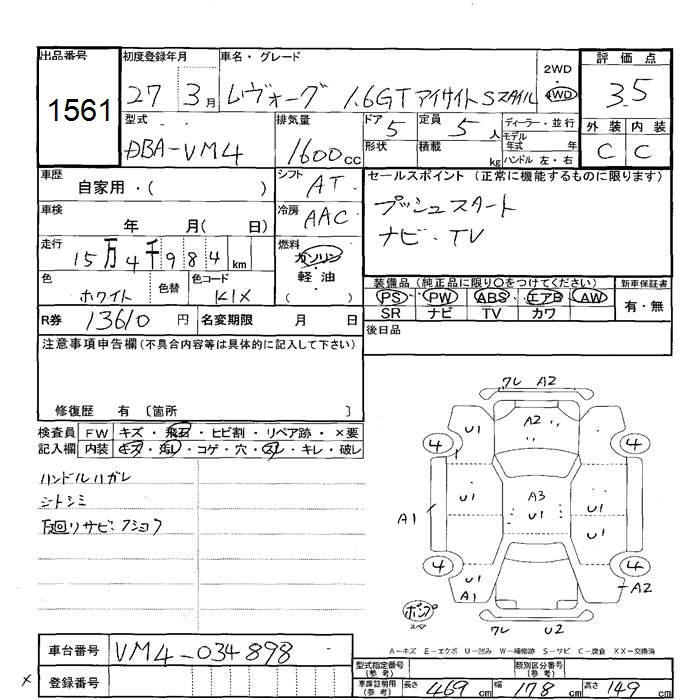 出品番号 初度登録年月 車名・グレード 2WD 評価点
1561 27 3月 レヴォーグ 1.6GT アイサイト Sスタイル 4WD 3.5
型式 排気量 ドア 定員 ディーラー・並行 外装 内装
DBA-VM4 1600cc 5 5人 モデル年式 年 C C
形状 積載 kg ハンドル 左・右
車歴 自家用・( ) シフト AT セールスポイント (正常に機能するものに限ります)
車検 年 月( 日) 冷房 AAC プッシュスタート
走行 15万4千984km 燃料 ガソリン・軽油 ( ) ナビ・TV
色 ホワイト 色替 色コード K1X 装備品 (純正品に限り〇をつけてください) 新車保証書
PS PW ABS エアB AW 有・無
SR ナビ TV カワ
R券 13610円 名変期限 月 日 後日品
注意事項申告欄(不具合内容等は具体的に記入して下さい)
修復歴 有 〔箇所 〕
検査員 FW キズ・飛石・ヒビ割・リペア跡・×要
記入欄 内装 キズ・汚レ・コゲ・穴・スレ・キレ・破レ
ハンドルハガレ
シートシミ
下廻リサビ・フショク
ワレ A2
U1 A2
4 4
U1 A3 U1 U1
A1
4 4
U1 A1 U1 A2
ポンプ スペ
ワレ U2
A-キズ E-エクボ U-凹み W-補修跡 S-サビ C-腐食 XX-交換済
車台番号 VM4-034898
× 登録番号
型式指定番号(参考) 類別区分番号(参考)
車庫証明用(参考) 長さ 469cm 幅 178cm 高さ 149cm